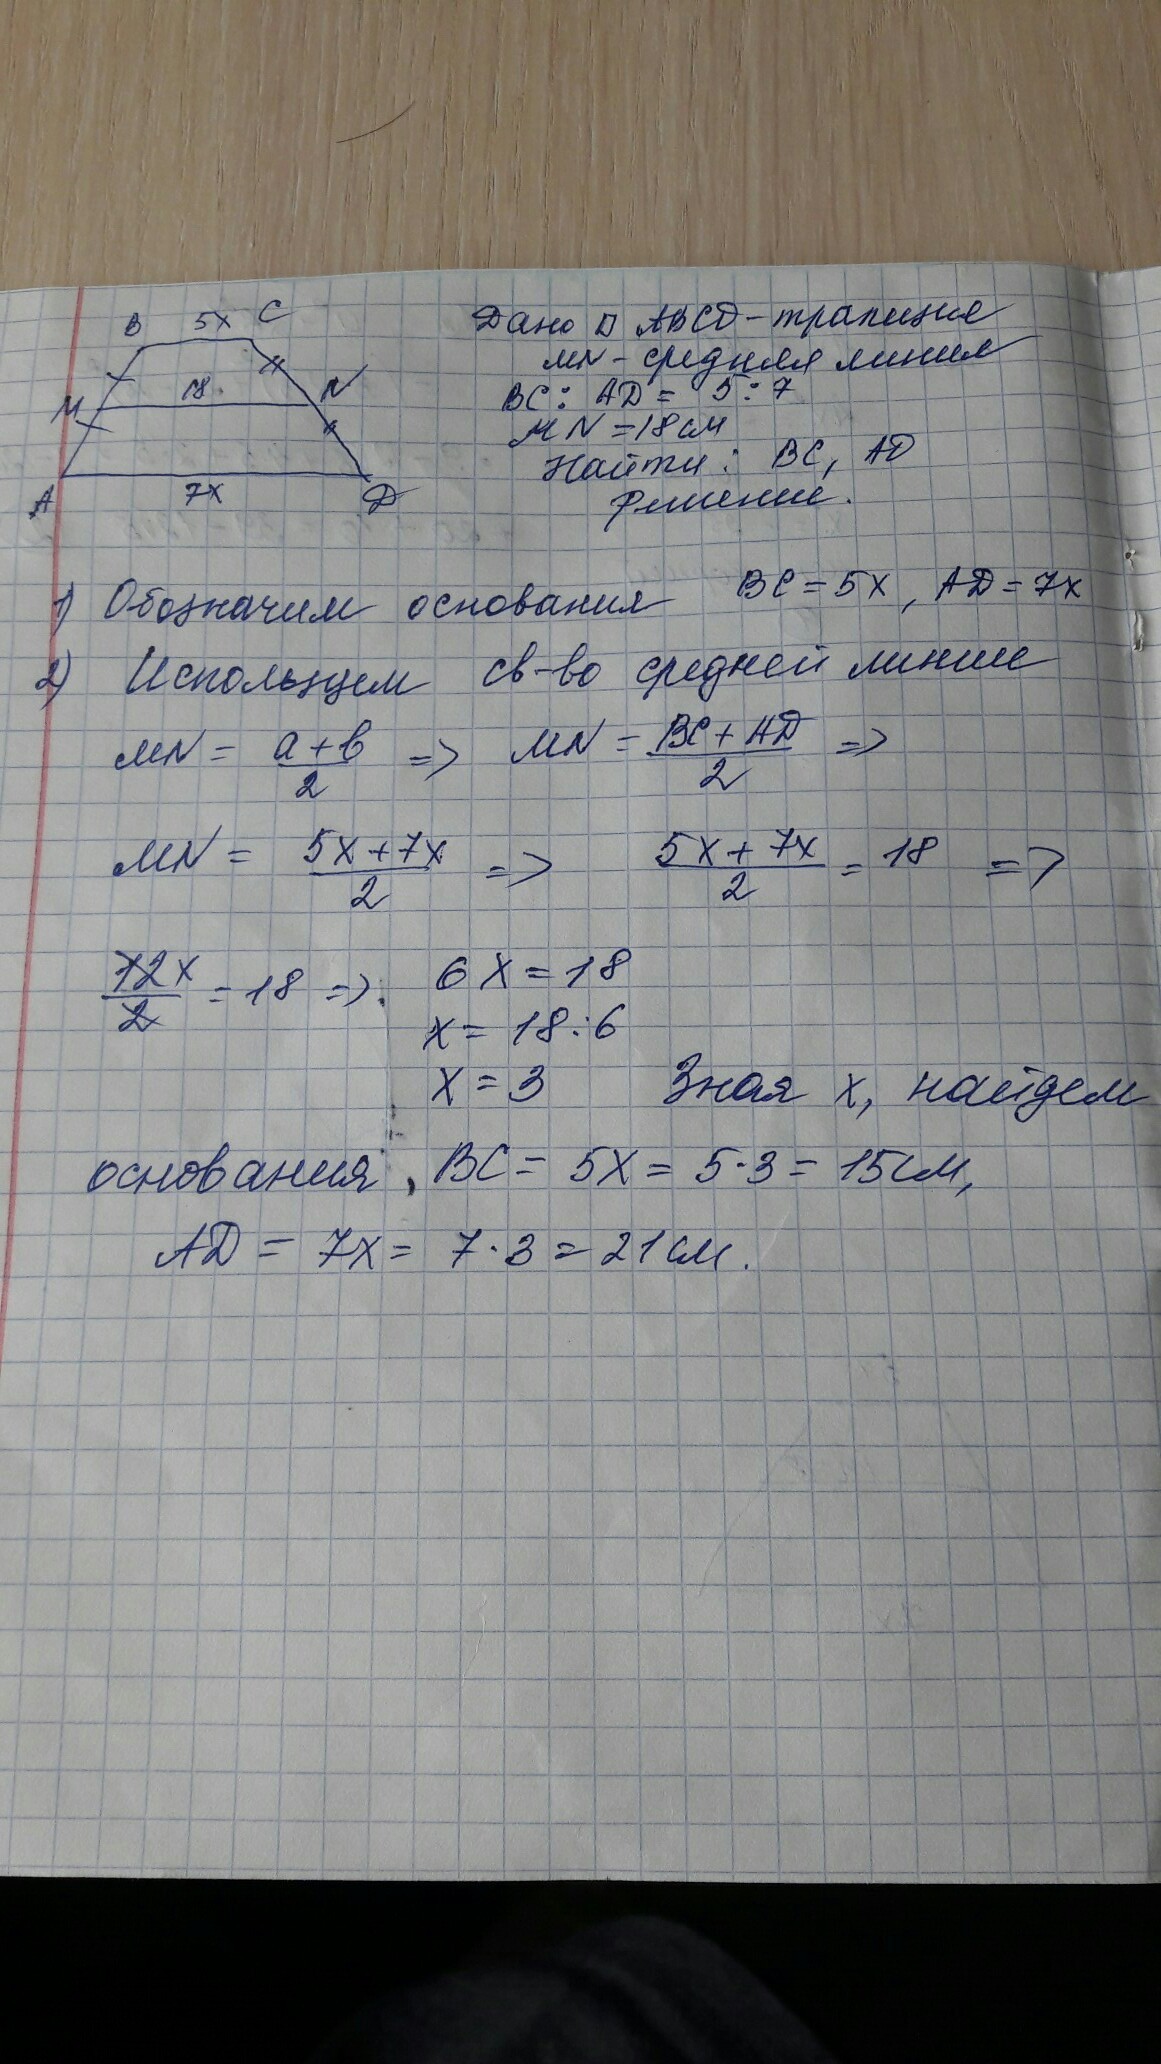 B 5x C
18
M N
A 7x D
Дано ABCD - трапеция
MN - средняя линия
BC : AD = 5 : 7
MN = 18 см
Найти : BC, AD
Решение.
1) Обозначим основания BC = 5x, AD = 7x
2) Используем св-во средней линии
MN = a + b / 2 => MN = BC + AD / 2 =>
MN = 5x + 7x / 2 => 5x + 7x / 2 = 18 =>
12x / 2 = 18 => 6x = 18
x = 18 : 6
x = 3 Зная x, найдем
основания, BC = 5x = 5 · 3 = 15 см,
AD = 7x = 7 · 3 = 21 см.